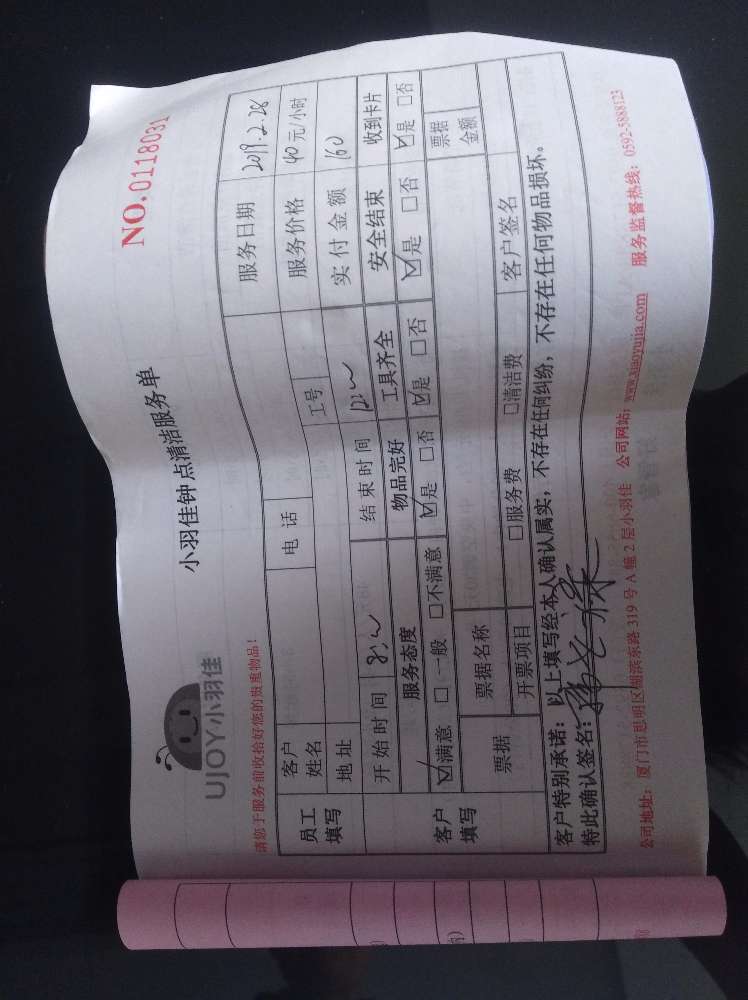 NO.0118031
UJOY小羽佳
小羽佳钟点清洁服务单
请您于服务前收拾好您的贵重物品!
员工填写 客户姓名 电话 服务日期 2019.2.28
地址 工号 服务价格 40元/小时
开始时间 结束时间 实付金额 160
客户填写 服务态度 物品完好 工具齐全 安全结束 收到卡片
☑满意 □一般 □不满意 ☑是 □否 ☑是 □否 ☑是 □否 ☑是 □否
票据 票据名称 票据金额
开票项目 □服务费 □清洁费 客户签名
客户特别承诺:以上填写经本人确认属实,不存在任何纠纷,不存在任何物品损坏。
特此确认签名:
公司地址:厦门市思明区湖滨东路319号A幢2层小羽佳 公司网站:www.xiaoyujia.com 服务监督热线:0592-5888123